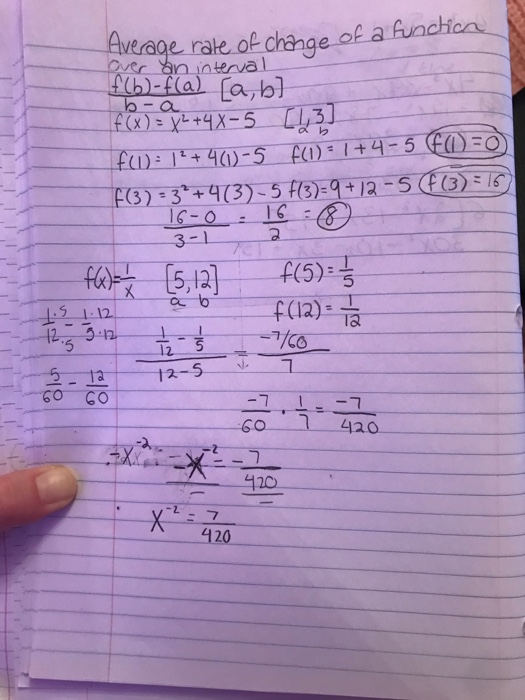 Average rate of change of a function
over an interval
f(b)-f(a) [a,b]
b-a
f(x) = x²+4x-5 [1,3]
a b
f(1) = 1²+4(1)-5 f(1)=1+4-5 f(1)=0
f(3)=3²+4(3)-5 f(3)=9+12-5 f(3)=16
16-0 = 16 = 8
3-1 2
f(x)=1/x [5,12] f(5)=1/5
a b
f(12)=1/12
1·5/12·5 - 1·12/5·12
1/12 - 1/5 = -7/60
12-5 7
5/60 - 12/60
-7/60 · 1/7 = -7/420
-x⁻² = -7/420
x⁻² = 7/420